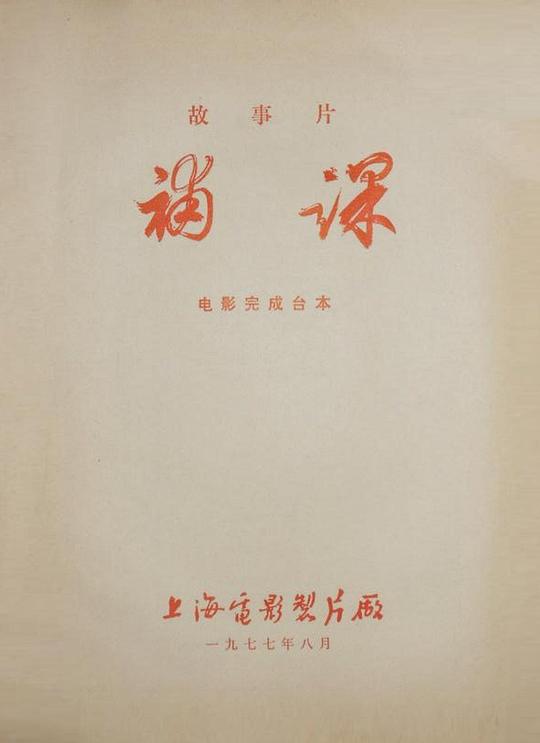 故事片
补课
电影完成台本
上海電影製片厰
一九七七年八月